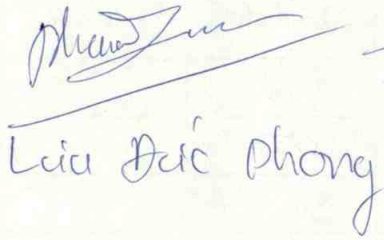 Lưu Đức Phong